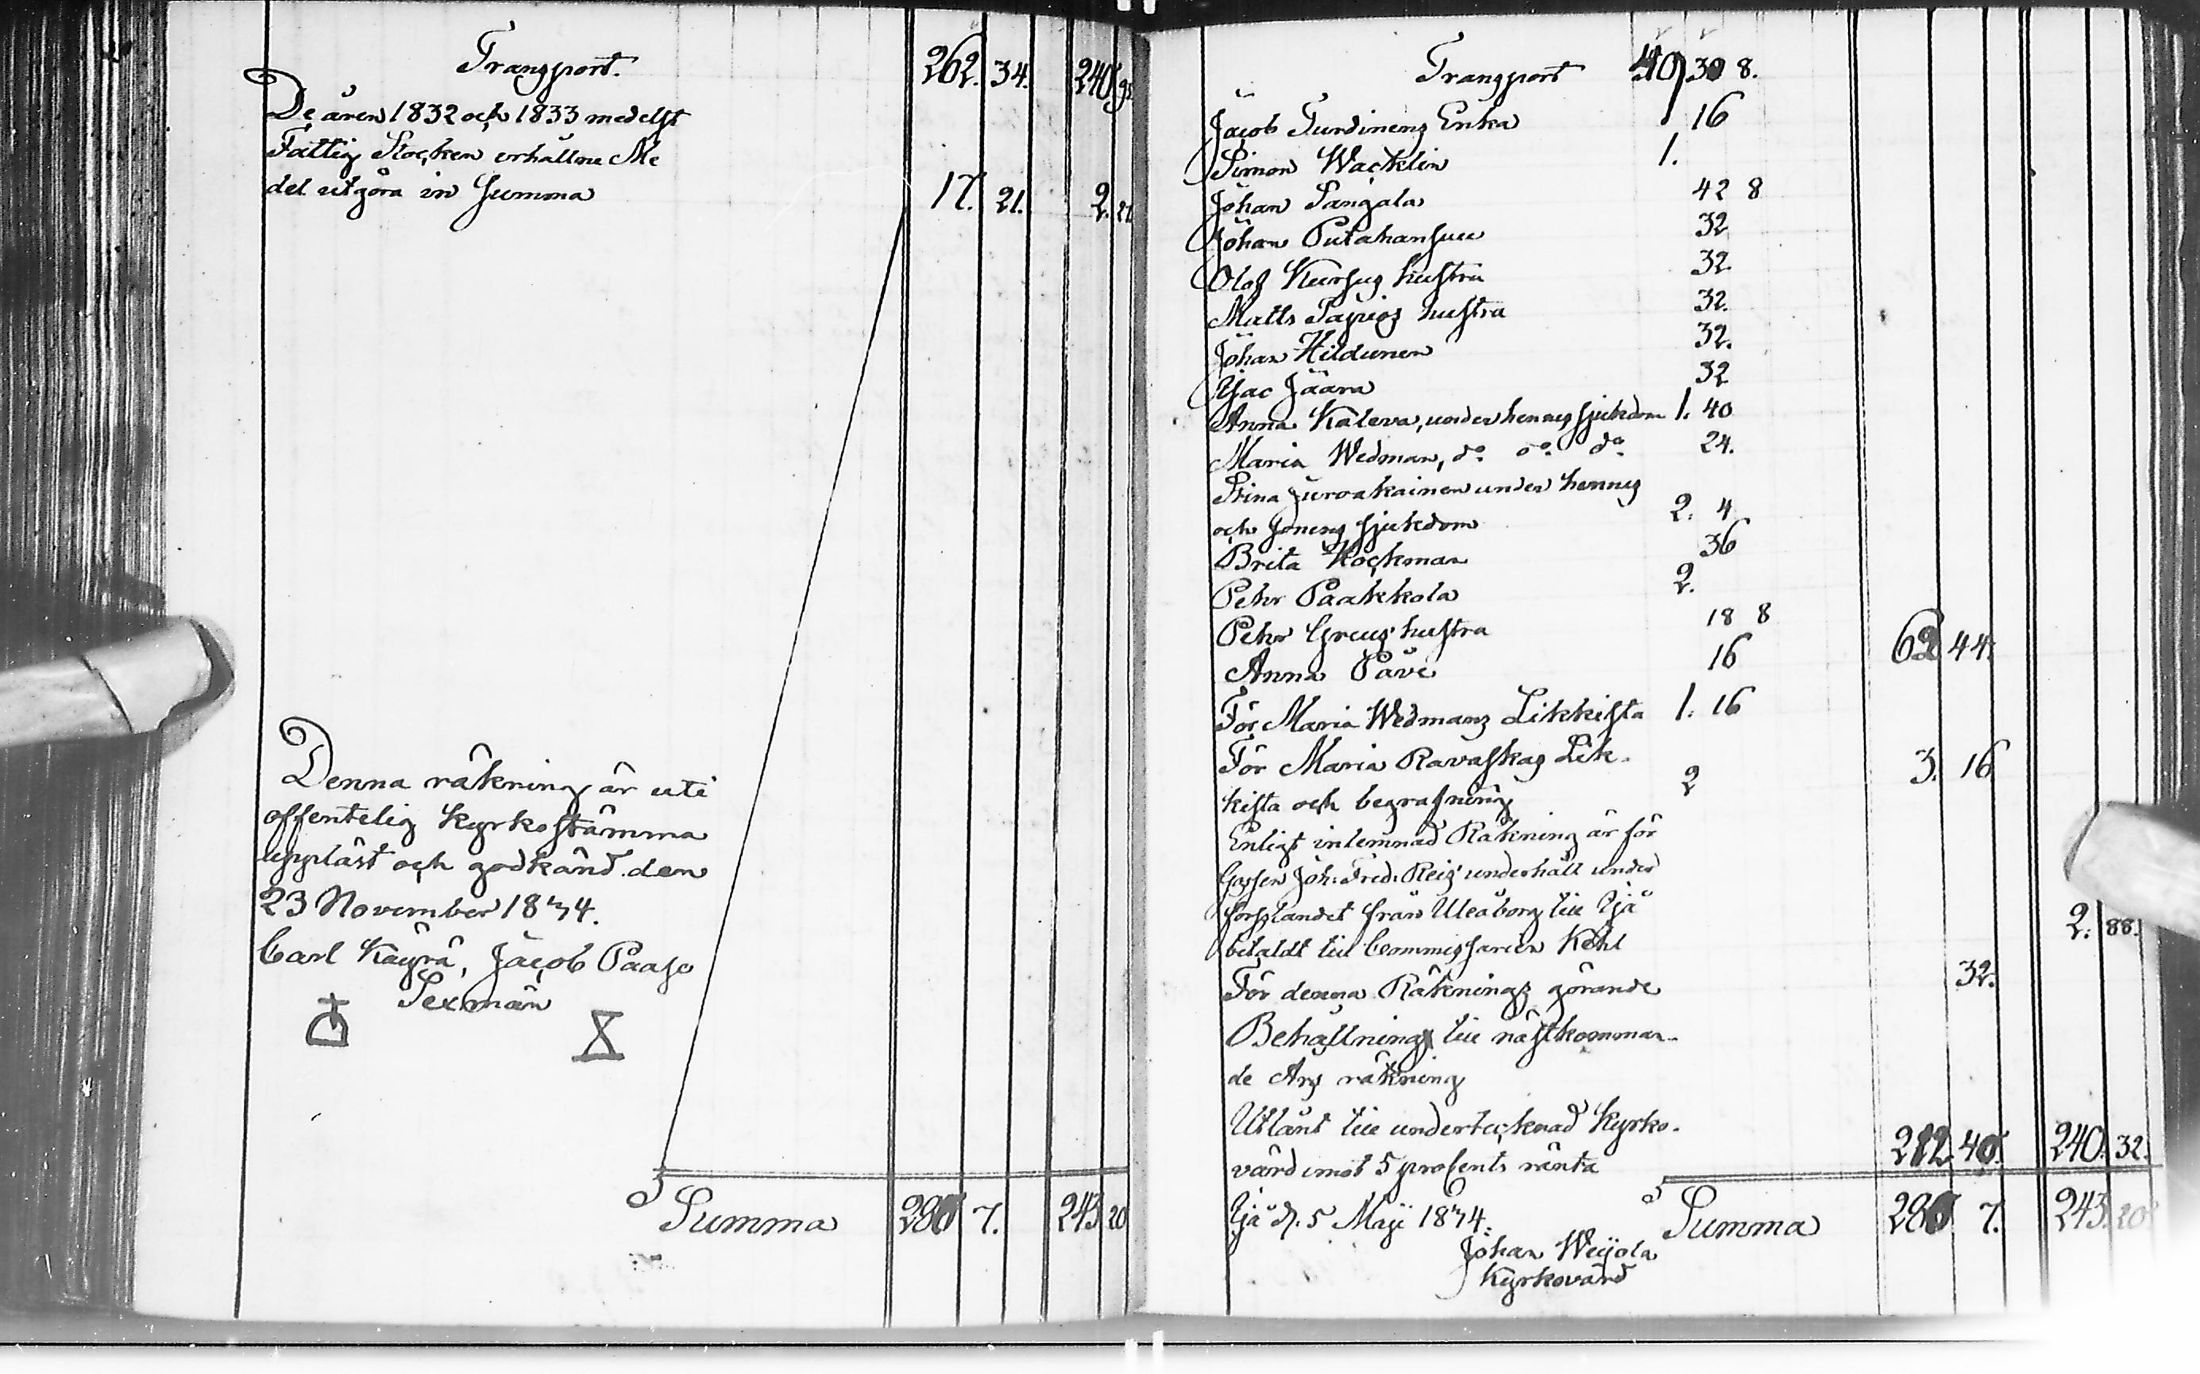 Transport. 262. 34. 240 92
De åren 1832 och 1833 medelst
Fattig Stocken erhållne Me
del utgöra in Summa 17. 21. 2. 21
Denna räkning är uti
offentelig Kyrkostämma
uppläst och godkänd den
23 November 1834.
Carl Käyrä, Jacob Paaso
Sexmän
Summa 280 7. 243 20
Transport 40 30 8.
Jacob Turdinens Enka 16
Simon Wacklin 1.
Johan Pangala 42 8
Johan Putahansuu 32
Olof Kursus hustru 32
Matts Päyiös hustru 32.
Johan Hildunen 32.
Isac Jäärä 32
Anna Kaleva, under hennes sjukdom 1. 40
Maria Wedman, do do do 24.
Stina Juroakainen under hennes
och sonens sjukdom 2. 4
Brita Kockman 36
Pehr Paakkola 2.
Pehr Greus hustru 18 8
Anna Päve 16 62 44.
För Maria Wedmans Likkista 1. 16
För Maria Ravaskas Lik-
kista och begrafning 2 3. 16
Enligt inlemnad Räkning är för
Gossen Joh. Fred. Reis underhåll under
forslandet från Uleåborg till Ijå
betaldt till Commissarien Kehl 2. 88.
För denna Räknings görande 32.
Behållning till nästkomman-
de Års räkning
Utlånt till undertecknad Kyrko-
värd emot 5 procents ränta 212 40. 240. 32.
Ijå d. 5 Maji 1834. Summa 280 7. 243. 20
Johan Weijola
Kyrkovärd